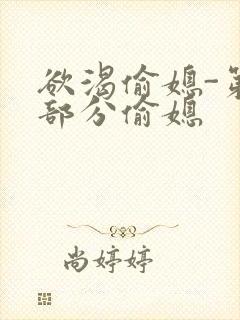 欲渴偷媳-第
部分偷媳
尚婷婷